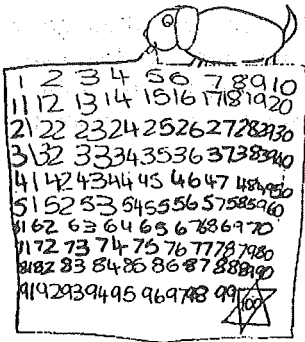 1 2 3 4 5 6 7 8 9 10
11 12 13 14 15 16 17 18 19 20
21 22 23 24 25 26 27 28 29 30
31 32 33 34 35 36 37 38 39 40
41 42 43 44 45 46 47 48 49 50
51 52 53 54 55 56 57 58 59 60
61 62 63 64 65 67 68 69 70
71 72 73 74 75 76 77 78 79 80
81 82 83 84 85 86 87 88 89 90
91 92 93 94 95 96 97 98 99 100